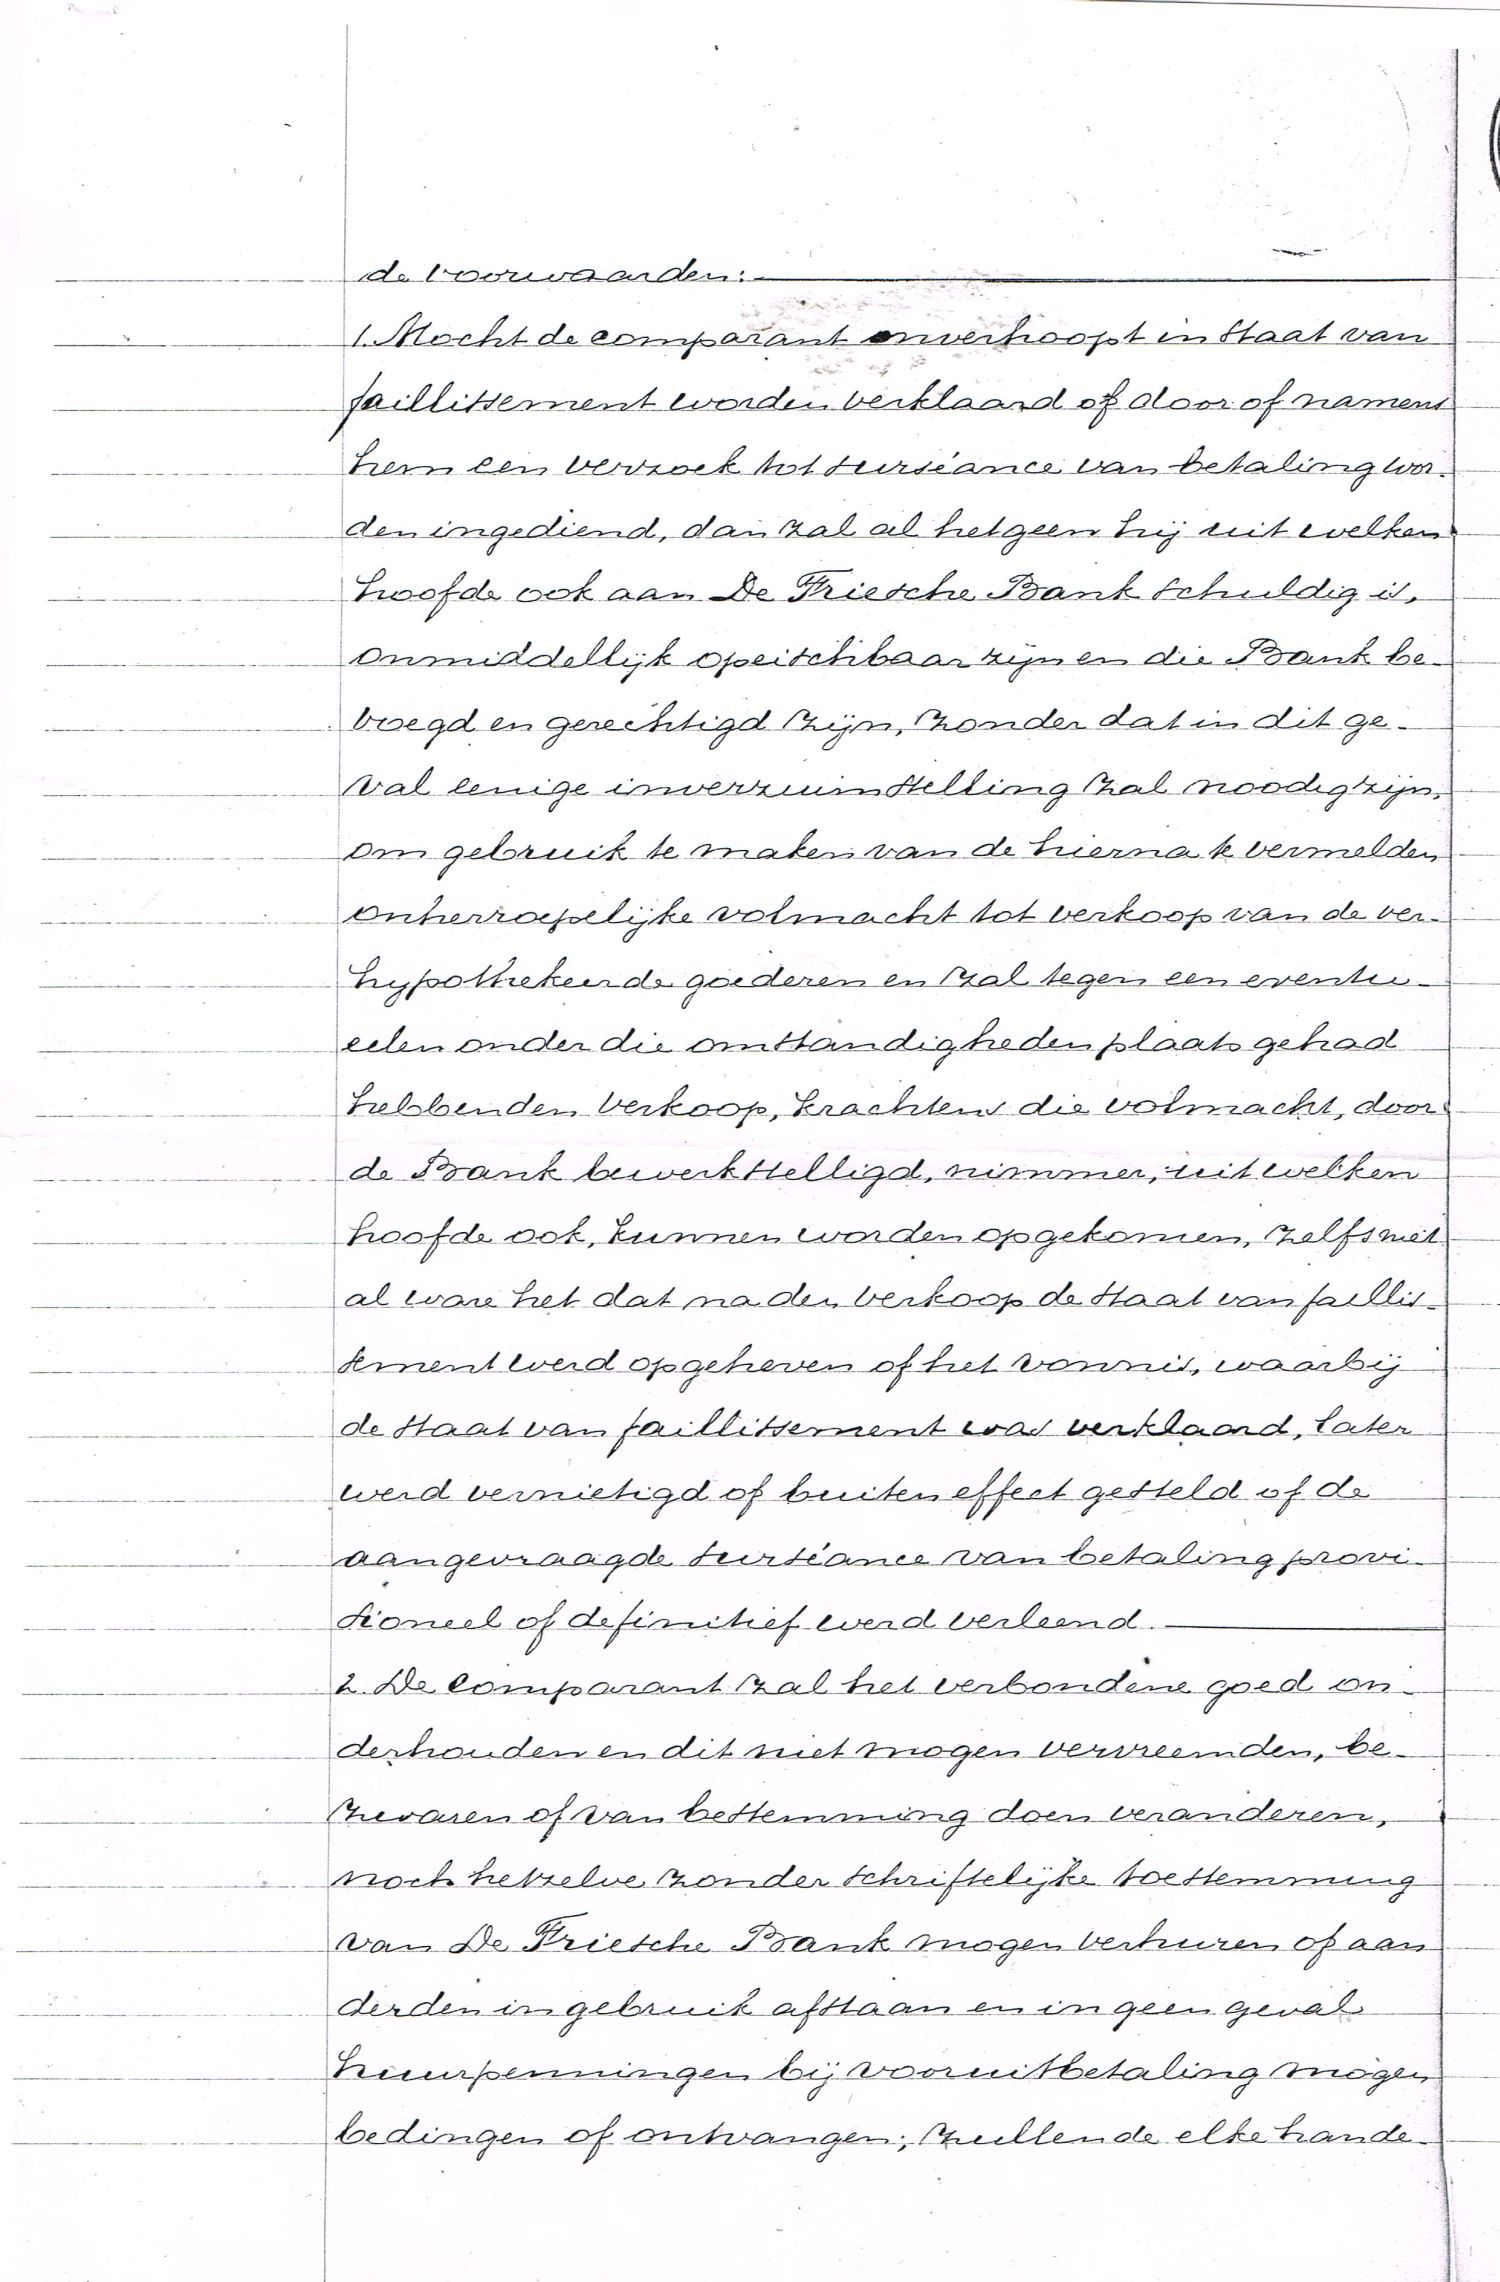 de voorwaarden:
1. Mocht de comparant onverhoopt in staat van
faillissement worden verklaard of door of namens
hem een verzoek tot surséance van betaling wor-
den ingediend, dan zal al hetgeen hij uit welken
hoofde ook aan De Friesche Bank schuldig is,
onmiddellijk opeischbaar zijn en die Bank be-
voegd en gerechtigd zijn, zonder dat in dit ge-
val eenige inverzuimstelling zal noodig zijn,
om gebruik te maken van de hierna te vermelden
onherroepelijke volmacht tot verkoop van de ver-
hypothekeerde goederen en zal tegen een eventu-
eelen onder die omstandigheden plaats gehad
hebbenden verkoop, krachtens die volmacht, door
de Bank bewerkstelligd, nimmer, uit welken
hoofde ook, kunnen worden opgekomen, zelfs niet
al ware het dat na den verkoop de staat van faillis-
sement werd opgeheven of het vonnis, waarbij
de staat van faillissement was verklaard, later
werd vernietigd of buiten effect gesteld of de
aangevraagde surséance van betaling provi-
sioneel of definitief werd verleend.
2. De comparant zal het verbondene goed on-
derhouden en dit niet mogen vervreemden, be-
zwaren of van bestemming doen veranderen,
noch hetzelve zonder schriftelijke toestemming
van De Friesche Bank mogen verhuren of aan
derden in gebruik afstaan en in geen geval
huurpenningen bij vooruitbetaling mogen
bedingen of ontvangen; zullende elke hande-